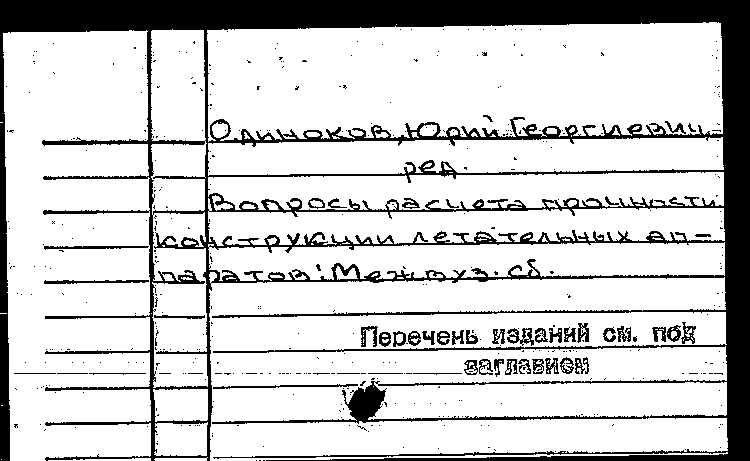 Одиноков, Юрий Георгиевич,
ред.
Вопросы расчета прочности
конструкции летательных ап-
паратов: Межвуз. сб.
Перечень изданий см. под
заглавием